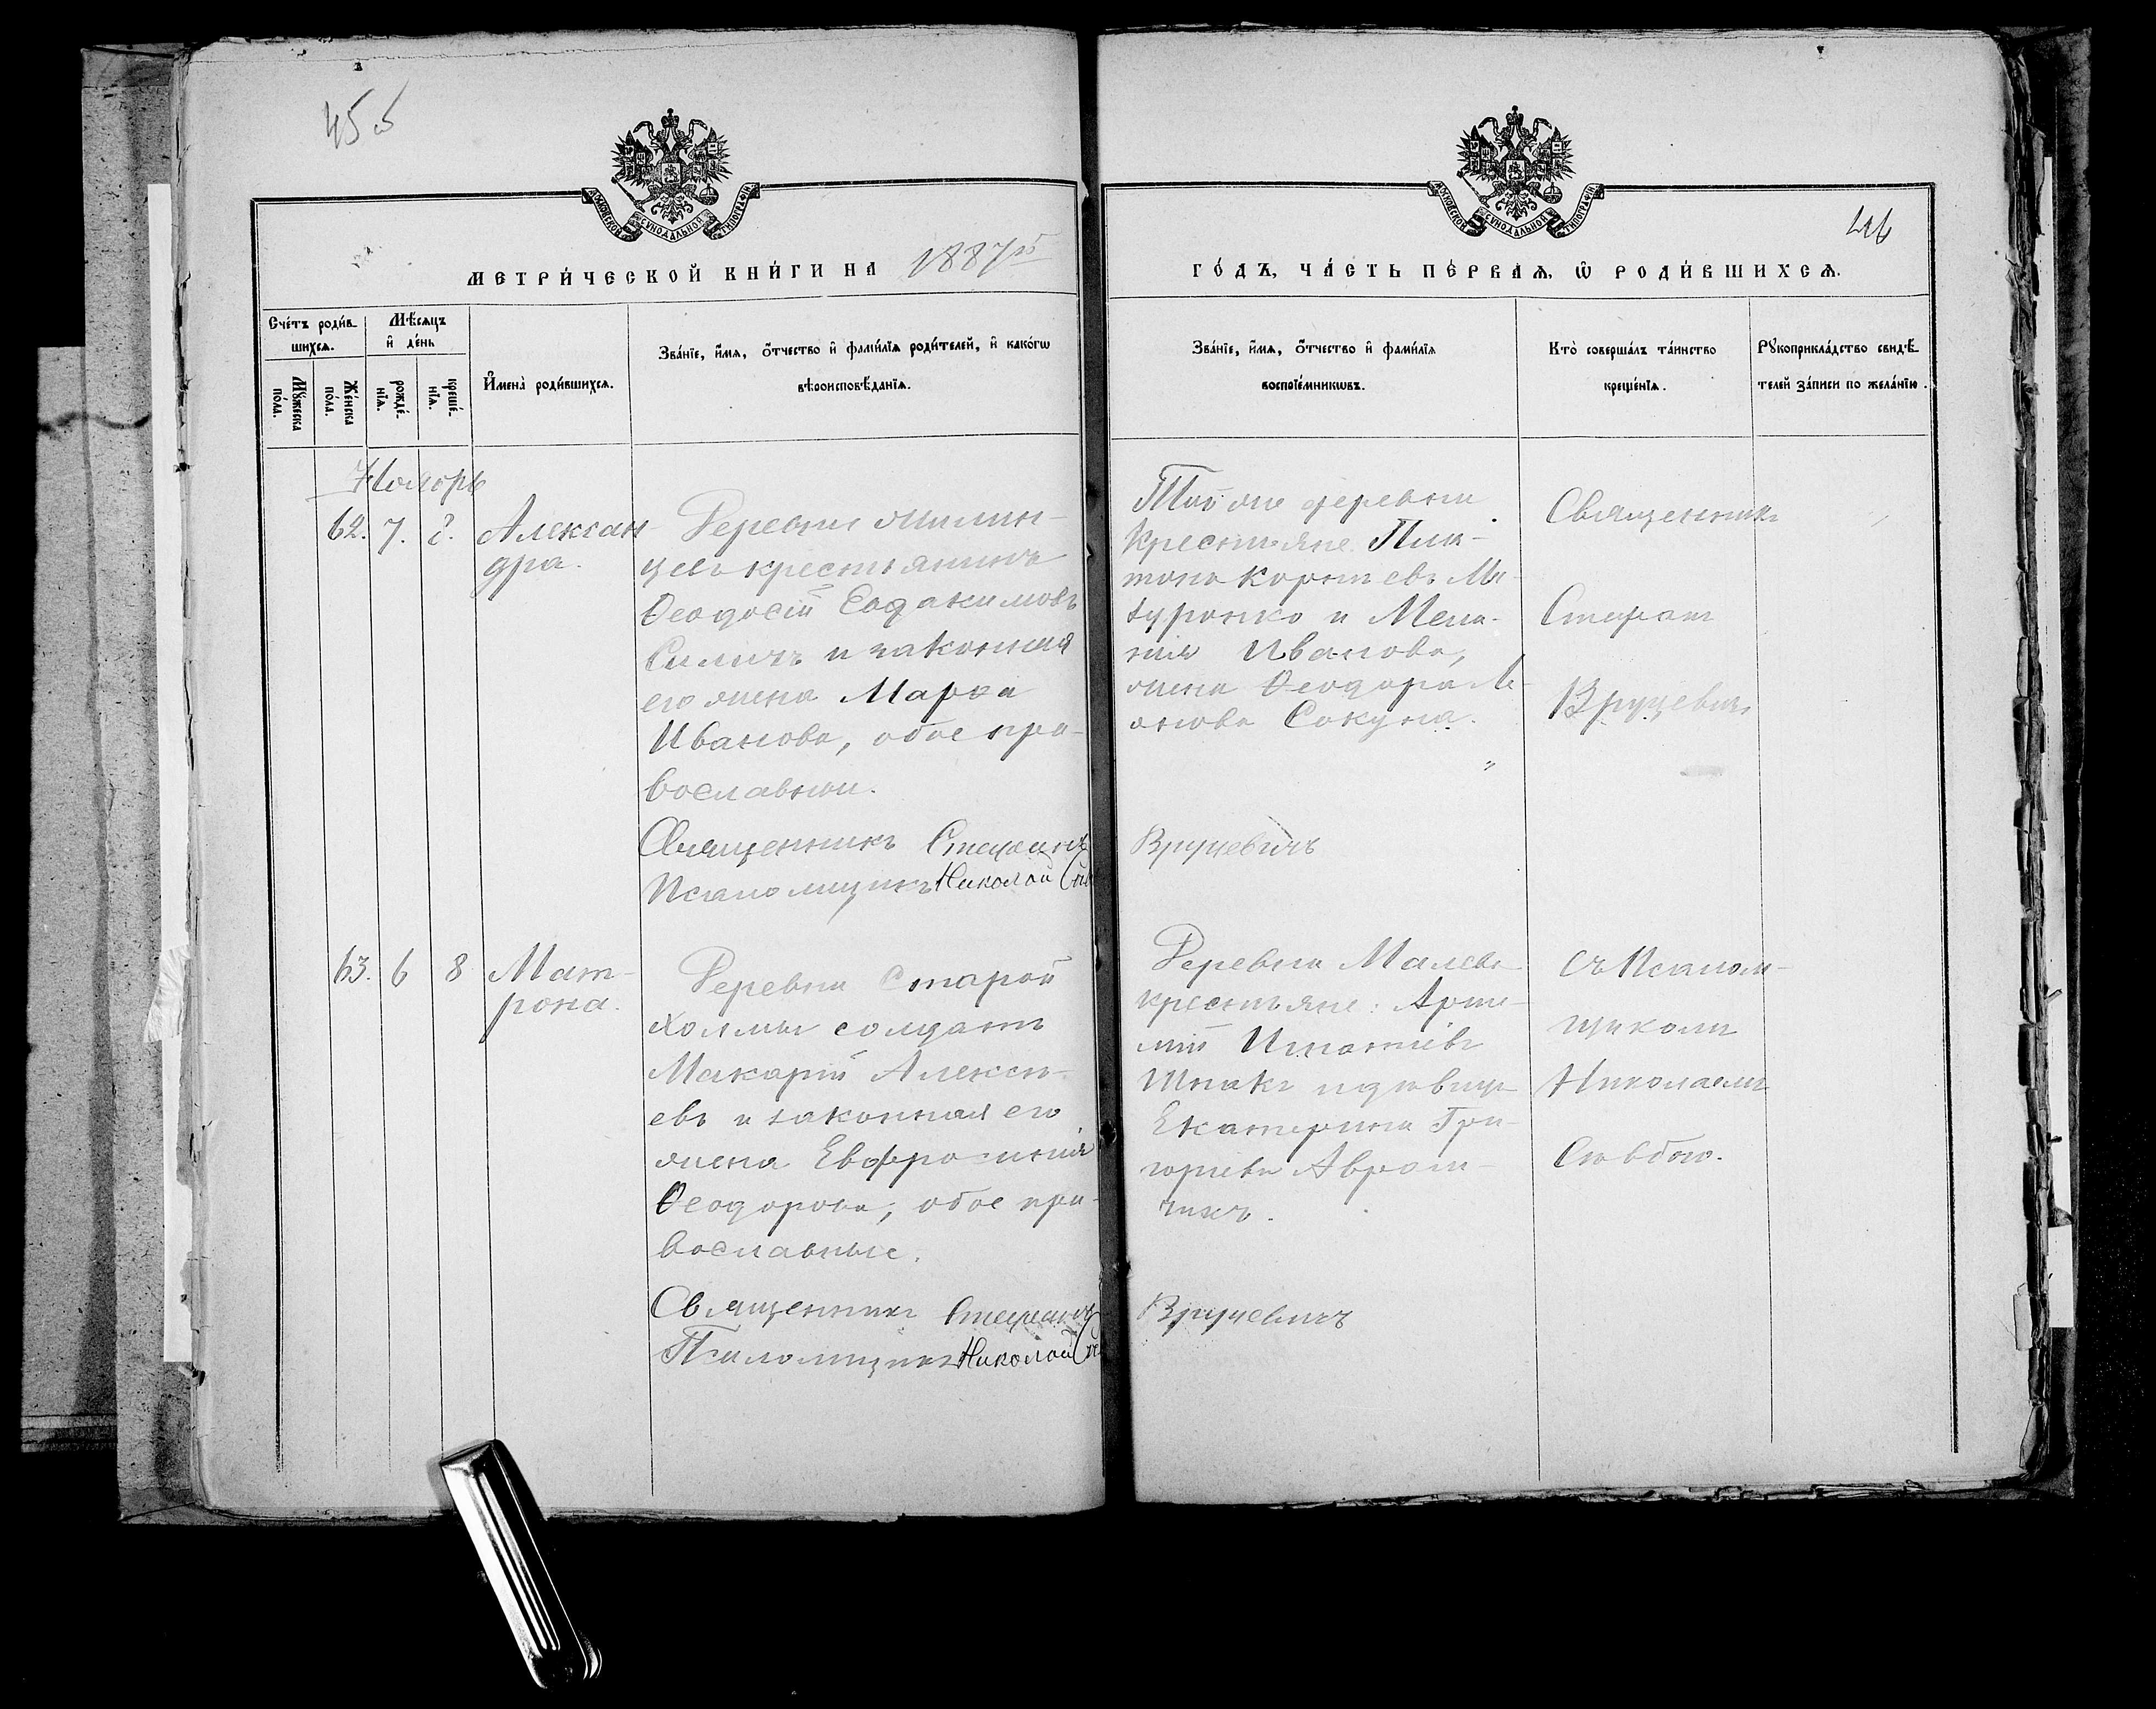 455
МОСКОВСКОЙ СѴНОДАЛЬНОЙ ТИПОГРАФІИ
МЕТРИ́ЧЕСКОЙ КНИ́ГИ НА 1887й
Сче́тъ роди́в-
шихсѧ.
Мѣ́сяцъ
и҆ де́нь
Мꙋ́жеска
по́ла.
Же́нска
по́ла.
рожде́-
нїѧ.
креще́-
нїѧ.
И҆мена̀ роди́вшихсѧ.
Зва́нїе, и҆́мѧ, ѻ҆́тчество и҆ фами́лїѧ роди́телей, и҆ како́гѡ
вѣроисповѣ́данїѧ.
Ноябрь
62. 7. 8. Алексан
дра.
Деревни
цевъ крестьянинъ
Ѳеодосій Евдакимовъ
Силичъ и законная
его жена Марѳа
Иванова, обое пра-
вославныи.
Священникъ Стефанъ
Псаломщикъ Николай
63. 6 8 Мат-
рона.
Деревни Старой
Холмы солдатъ
Макарій Алексѣ-
евъ и законная его
жена Евфросинія
Ѳеодорова, обое пра-
вославные.
Священникъ Стефанъ
Псаломщикъ Николай
МОСКОВСКОЙ СѴНОДАЛЬНОЙ ТИПОГРАФІИ
ГО́ДЪ, ЧА́СТЬ ПЕ́РВАѦ, Ѡ҆ РОДИ́ВШИХСѦ.
Зва́нїе, и҆́мѧ, ѻ҆́тчество и҆ фами́лїѧ
воспрїе́мникѡвъ.
Кто̀ соверша́лъ та́инство
креще́нїѧ.
Рꙋкоприкла́дство свидѣ́-
телей за́писи по жела́нїю.
Той же деревни
крестьяне Пла-
тонъ Корнѣевъ Ма-
зуронко и Мела-
нія Иванова,
жена Ѳеодора Ле-
онова Сокуна.
Священникъ
Стефанъ
Вруцевичъ
Вруцевичъ
Деревни Малевъ
крестьяне: Арте-
мій Игнатіевъ
Шпакъ и дѣвица
Екатерина Гри-
горіева Аврам-
чикъ.
съ Псалом-
щикомъ
Николаемъ
Вруцевичъ